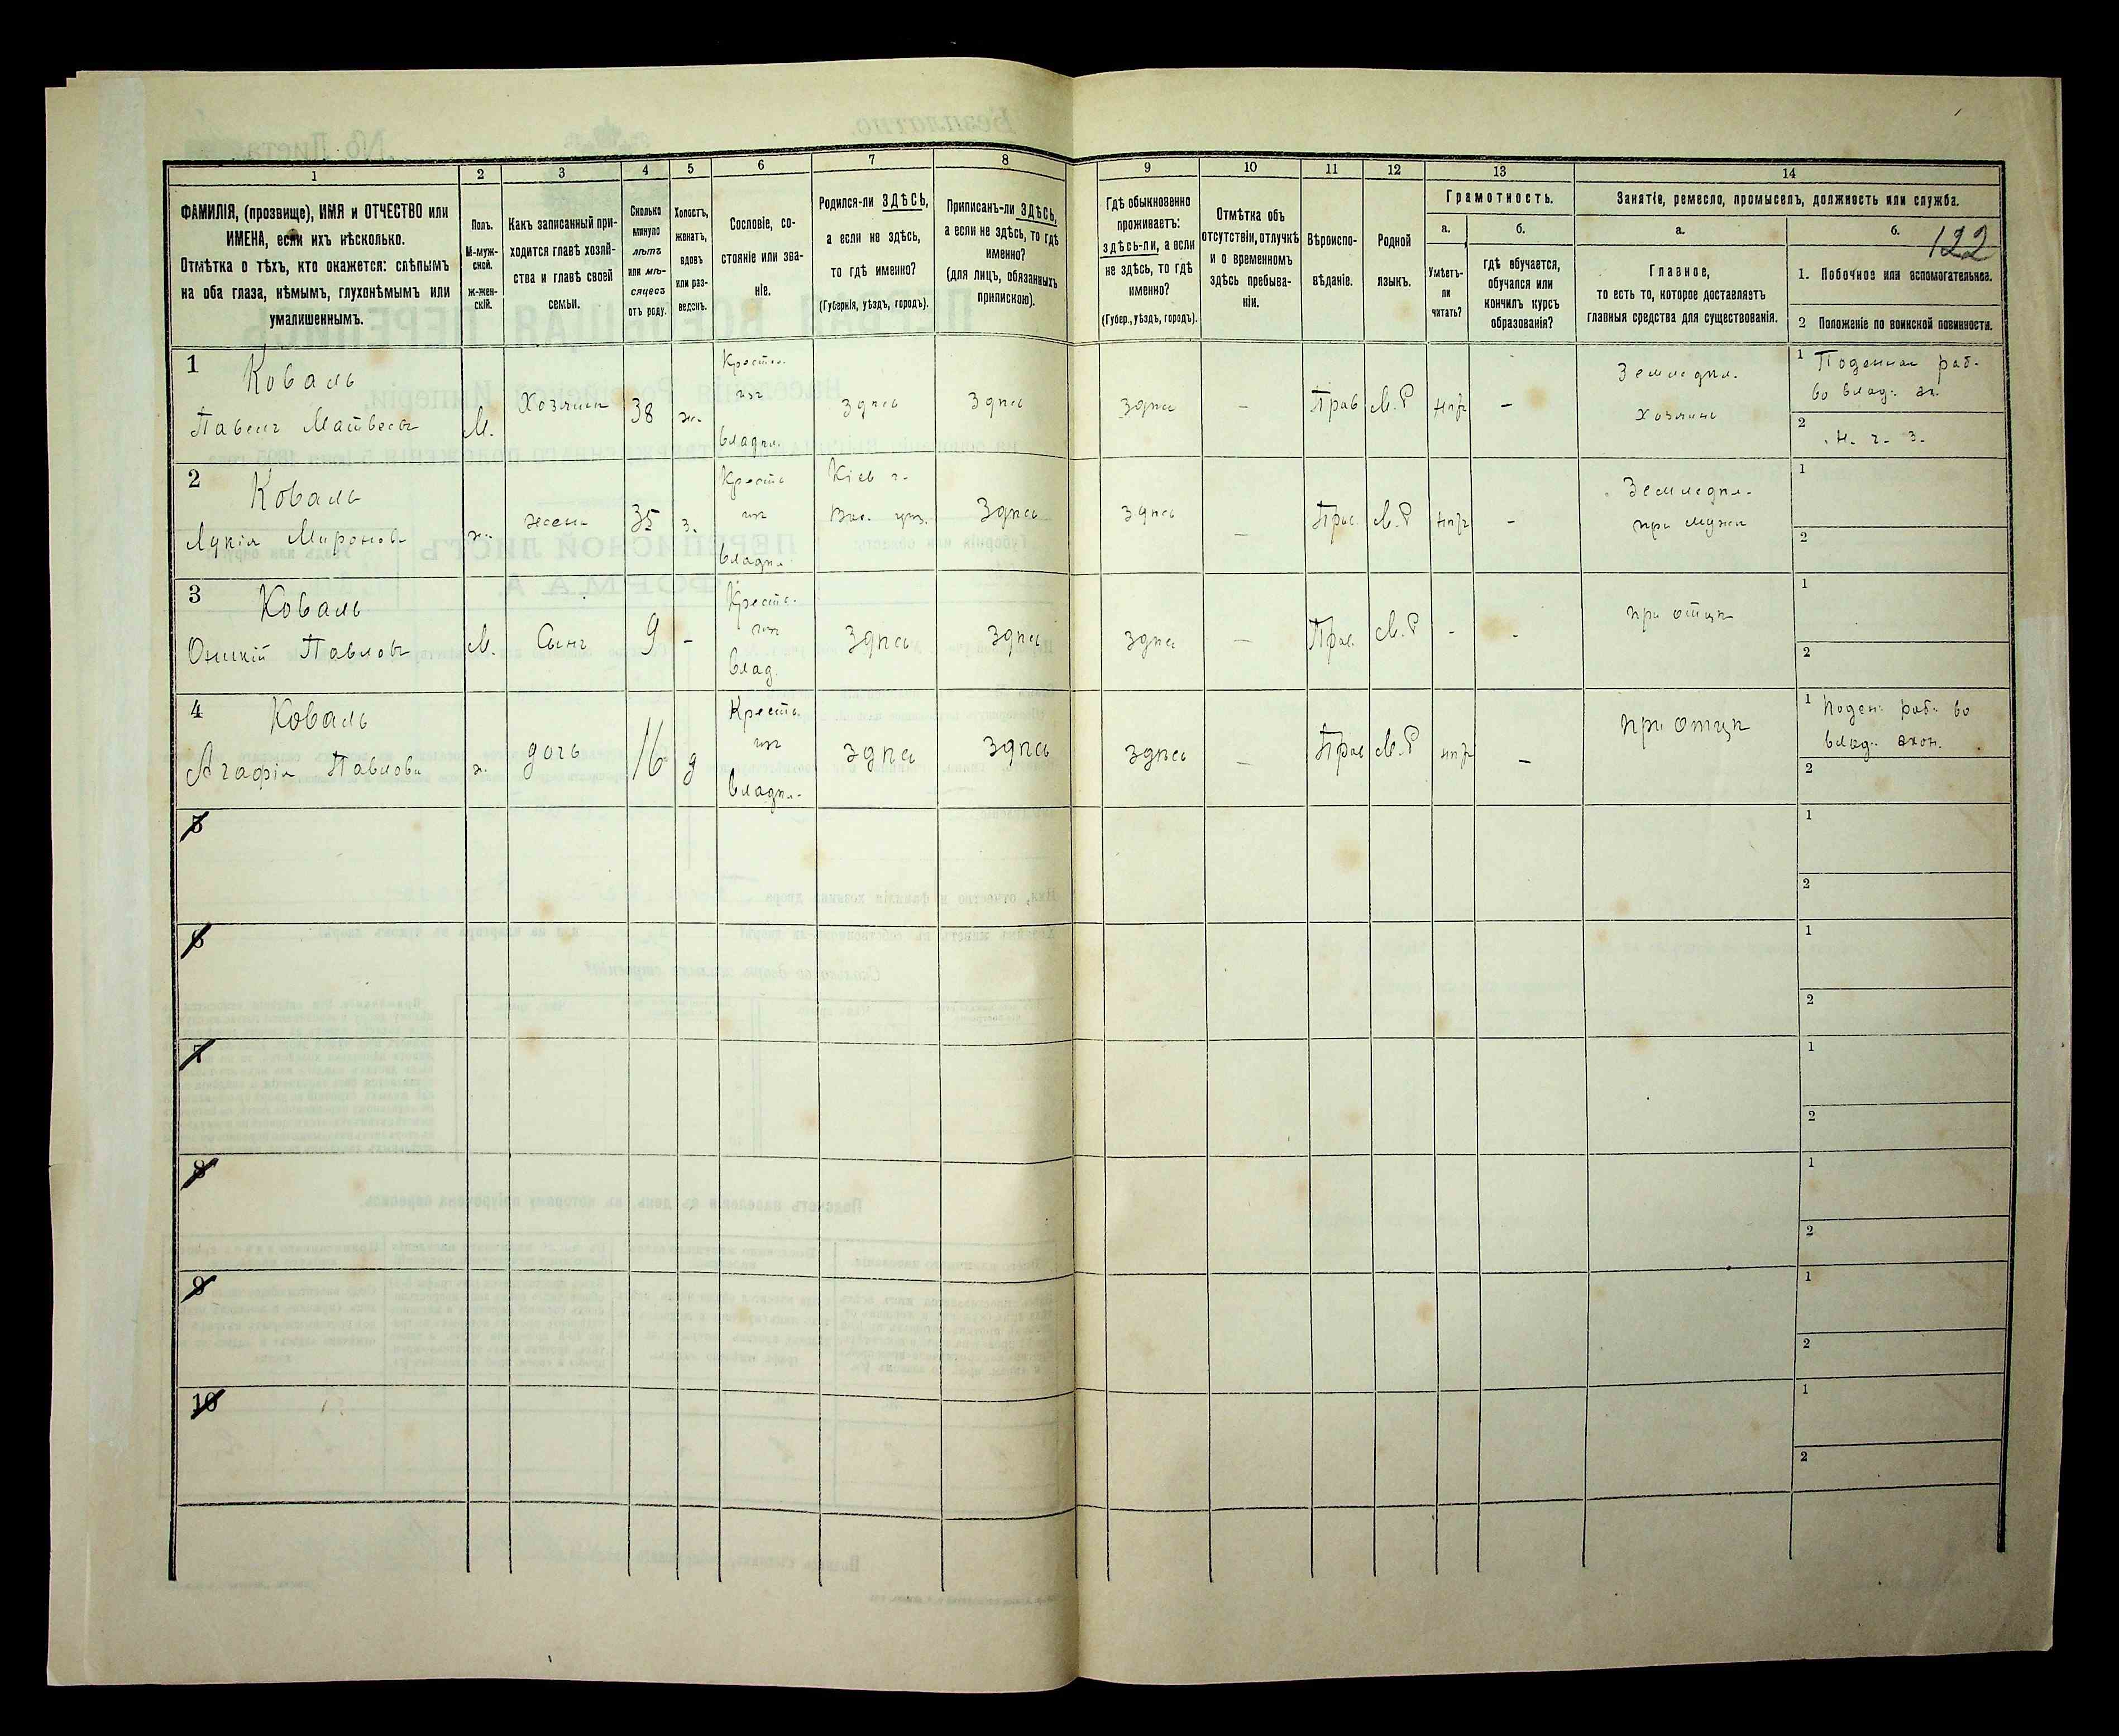 122
1 2 3 4 5 6 7 8 9 10 11 12 13 14
ФАМИЛІЯ, (прозвище), ИМЯ и ОТЧЕСТВО или
ИМЕНА, если ихъ нѣсколько.
Отмѣтка о тѣхъ, кто окажется: слѣпымъ
на оба глаза, нѣмымъ, глухонѣмымъ или
умалишеннымъ.
Полъ.
М-муж-
ской.
ж-жен-
скій.
Какъ записанный при-
ходится главѣ хозяй-
ства и главѣ своей
семьи.
Сколько
минуло
лѣтъ
или мѣ-
сяцевъ
отъ роду.
Холостъ,
женатъ,
вдовъ
или раз-
веденъ.
Сословіе, со-
стояніе или зва-
ніе.
Родился-ли ЗДѢСЬ,
а если не здѣсь,
то гдѣ именно?
(Губернія, уѣздъ, городъ).
Приписанъ-ли ЗДѢСЬ,
а если не здѣсь, то гдѣ
именно?
(для лицъ, обязанныхъ
припискою).
Гдѣ обыкновенно
проживаетъ:
здѣсь-ли, а если
не здѣсь, то гдѣ
именно?
(Губер., уѣздъ, городъ).
Отмѣтка объ
отсутствіи, отлучкѣ
и о временномъ
здѣсь пребыва-
ніи.
Вѣроиспо-
вѣданіе.
Родной
языкъ.
Грамотность.
а.
Умѣетъ-
ли
читать?
б.
гдѣ обучается,
обучался или
кончилъ курсъ
образованія?
Занятіе, ремесло, промыселъ, должность или служба.
а.
Главное,
то есть то, которое доставляетъ
главныя средства для существованія.
б.
1. Побочное или вспомогательное.
2 Положеніе по воинской повинности.
1 Коваль
Павелъ Матвеевъ
М.
Хозяинъ
38
ж.
Крестьян.
изъ
владѣл.
здѣсь
здѣсь
здѣсь
–
Прав
М.Р
нѣтъ
–
Земледѣл.
хозяинъ
1 Поденная раб.
во влад. эк.
2 Н. ч. З.
2 Коваль
Лукія Миронова
ж.
жена
35
з.
Кресть
изъ
владѣл.
Кіев г.
Вас. уѣз.
Здѣсь
здѣсь
–
Прав.
М.Р
нѣтъ
–
Земледѣл.
при мужѣ
1
2
3 Коваль
Павловъ
М.
Сынъ
9
–
Кресть.
изъ
влад.
Здѣсь
Здѣсь
здѣсь
–
Прав.
М.Р
-
-
при отцѣ
1
2
4 Коваль
Агафія Павлова
ж.
дочь
16
д
Кресть.
изъ
владѣл.
здѣсь
здѣсь
здѣсь
–
Прав
М.Р
нѣтъ
–
при отцѣ
1 Поден. раб. во
влад. экон.
2
5
1
2
6
1
2
7
1
2
8
1
2
9
1
2
10
1
2